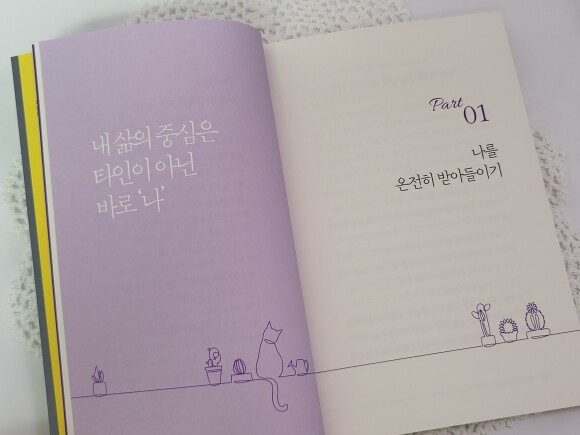 내 삶의 중심은
타인이 아닌
바로 '나'
Part
01
나를
온전히 받아들이기